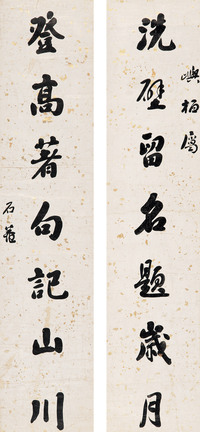 洗壁留名題歲月
嶼栢屬
登高著句記山川
石菴